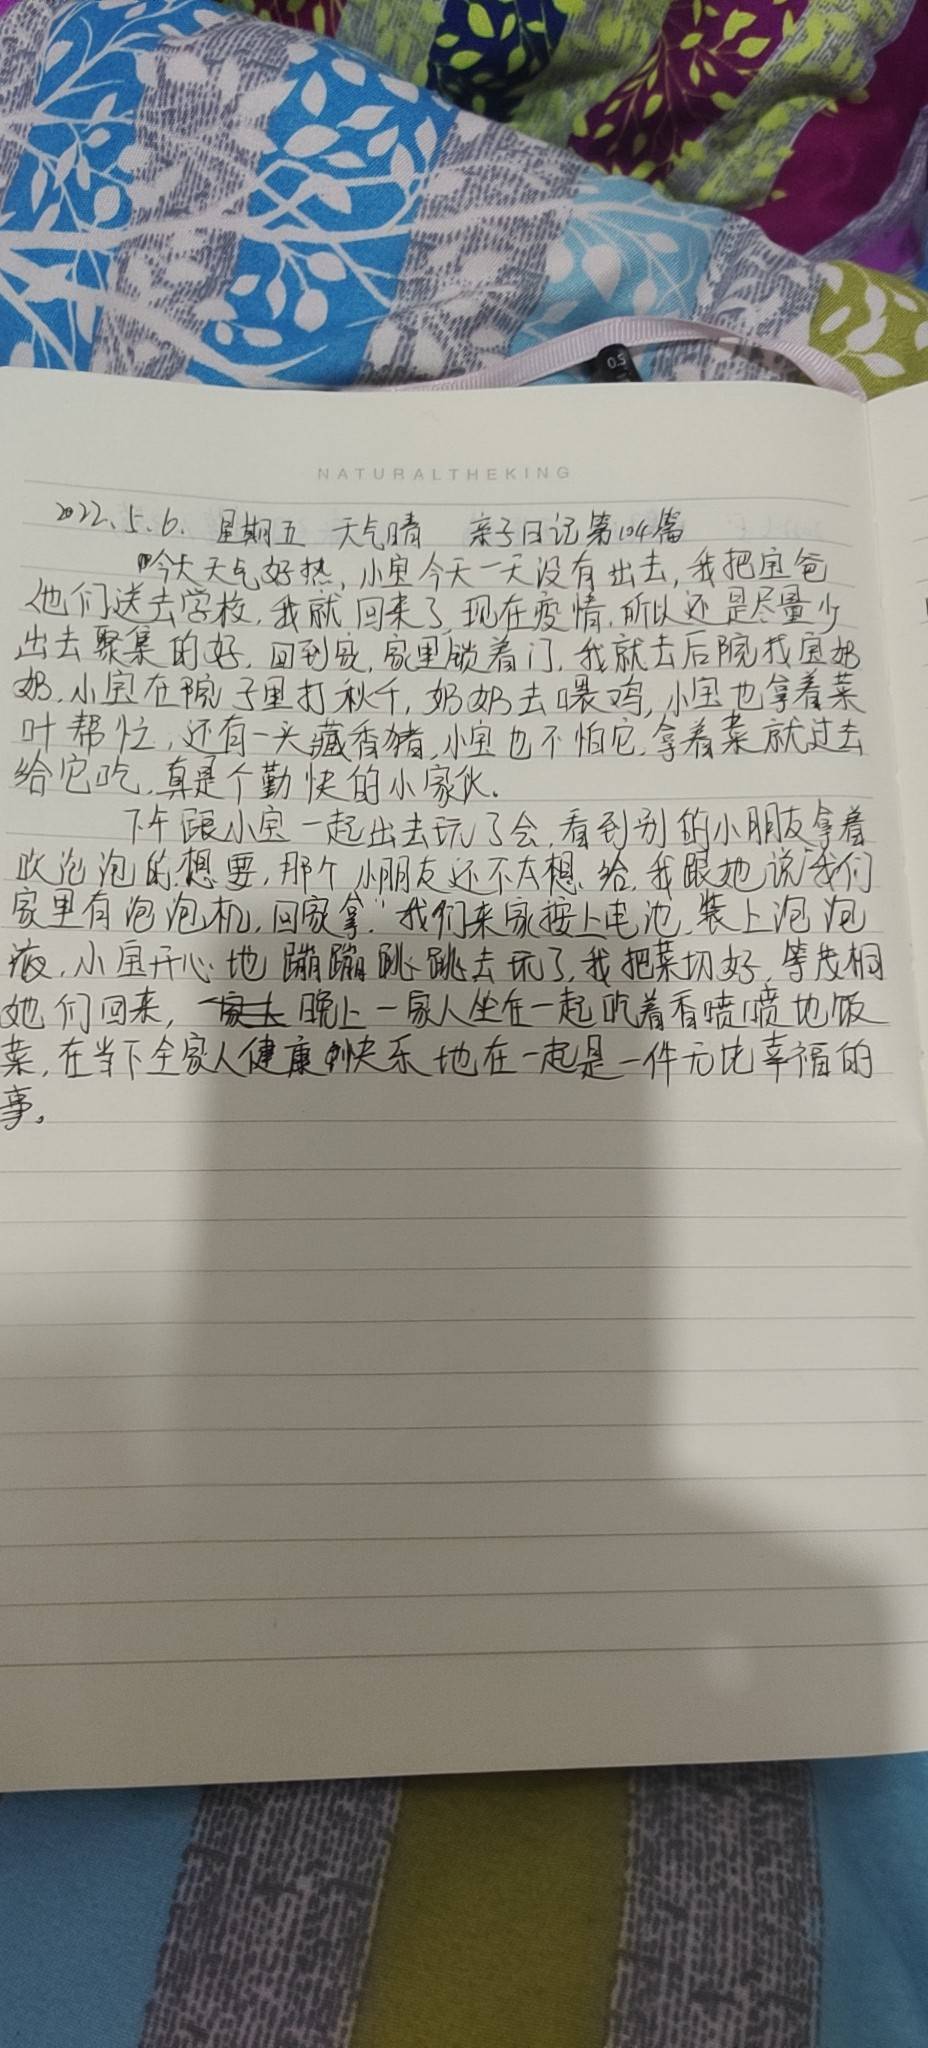 0.5
NATURALTHEKING
2022.5.6. 星期五 天气晴 亲子日记第104篇
今天天气好热,小宝今天一天没有出去,我把宝爸
他们送去学校,我就回来了,现在疫情,所以还是尽量少
出去聚集的好,回到家,家里锁着门,我就去后院找宝奶
奶,小宝在院子里打秋千,奶奶去喂鸡,小宝也拿着菜
叶帮忙,还有一头藏香猪,小宝也不怕它,拿着菜就过去
给它吃,真是个勤快的小家伙。
下午跟小宝一起出去玩了会,看到别的小朋友拿着
吹泡泡的想要,那个小朋友还不大想给,我跟她说“我们
家里有泡泡机,回家拿”我们来家按上电池,装上泡泡
液,小宝开心地蹦蹦跳跳去玩了,我把菜切好,等茂桐
她们回来,晚上一家人坐在一起吃着香喷喷地饭
菜,在当下全家人健康快乐地在一起是一件无比幸福的
事。